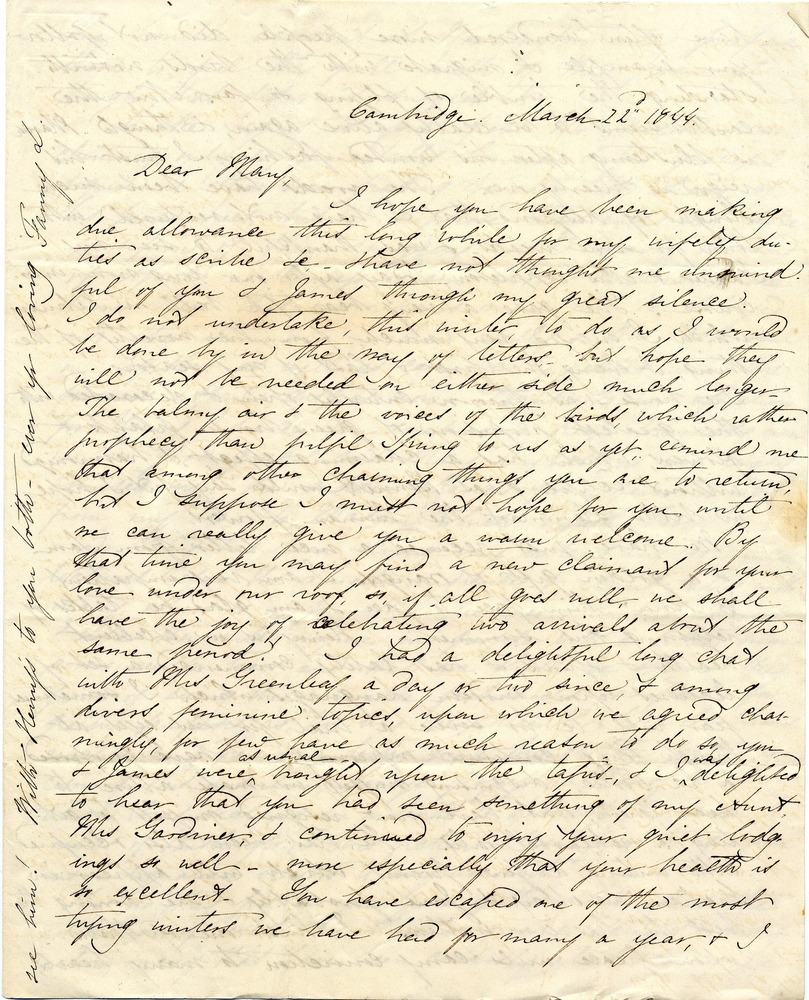 Cambridge. March 22d 1844.
Dear Mary,
I hope you have been making
due allowance this long while for my wifely du-
ties as scribe &c - & have not thought me unmind-
ful of you & James through my great silence.
I do not undertake, this winter to do as I would
be done by in the way of letters, but hope they
will not be needed on either side much longer.
The balmy air & the voices of the birds, which rather
prophecy than fulfil Spring to us as yet, remind me
that among other charming things you are to return,
but I suppose I must not hope for you until
we can really give you a warm welcome. By
that time you may find a new claimant for your
love under our roof, so, if all goes well, we shall
have the joy of celebrating two arrivals about the
same period! I had a delightful long chat
with Mrs Greenleaf a day or two since, & among
divers feminine topics, upon which we agreed char-
mingly, for few have as much reason to do so, you
& James were as usual brought upon the tapis, & I was delighted
to hear that you had seen something of my Aunt,
Mrs Gardiner, & continued to enjoy your quiet lodg-
ings so well - more especially that your health is
so excellent. You have escaped one of the most
trying winters we have had for many a year, & I
see him! With Henry's to you both - ever yr loving Fanny L.